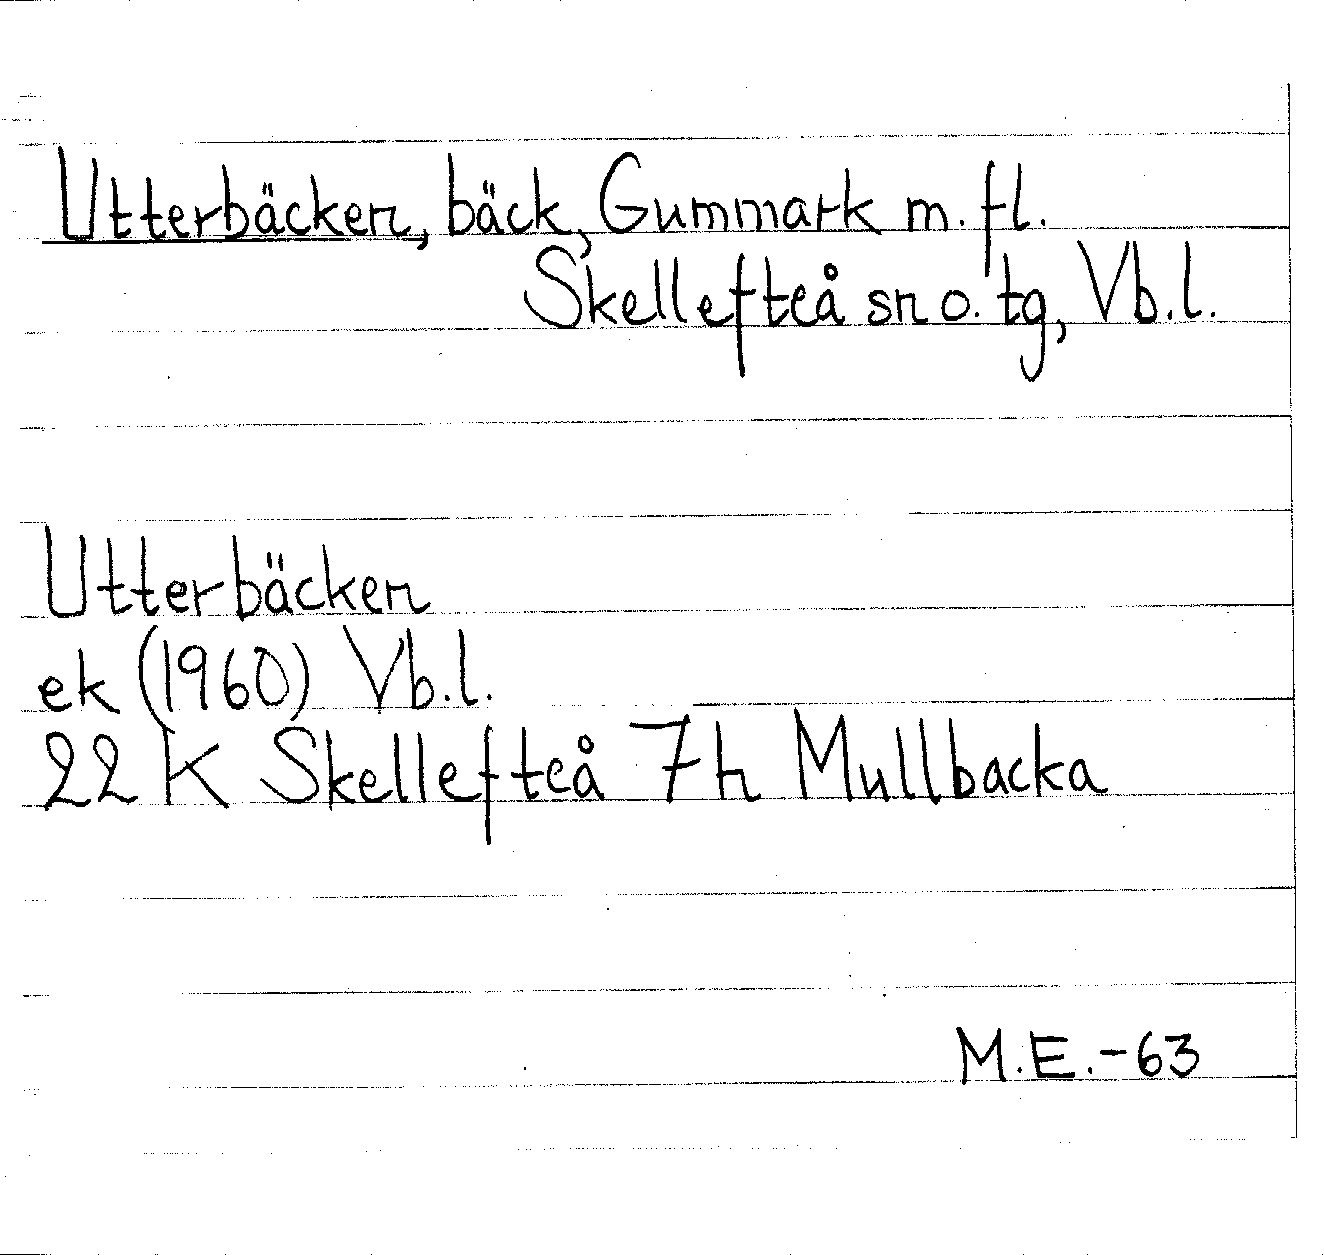 Utterbäcken, bäck, Gummark m. fl.
Skellefteå sn o. tg, Vb.l.
Utterbäcken
ek (1960) Vb.l.
22 K Skellefteå 7h Mullbacka
M.E.-63